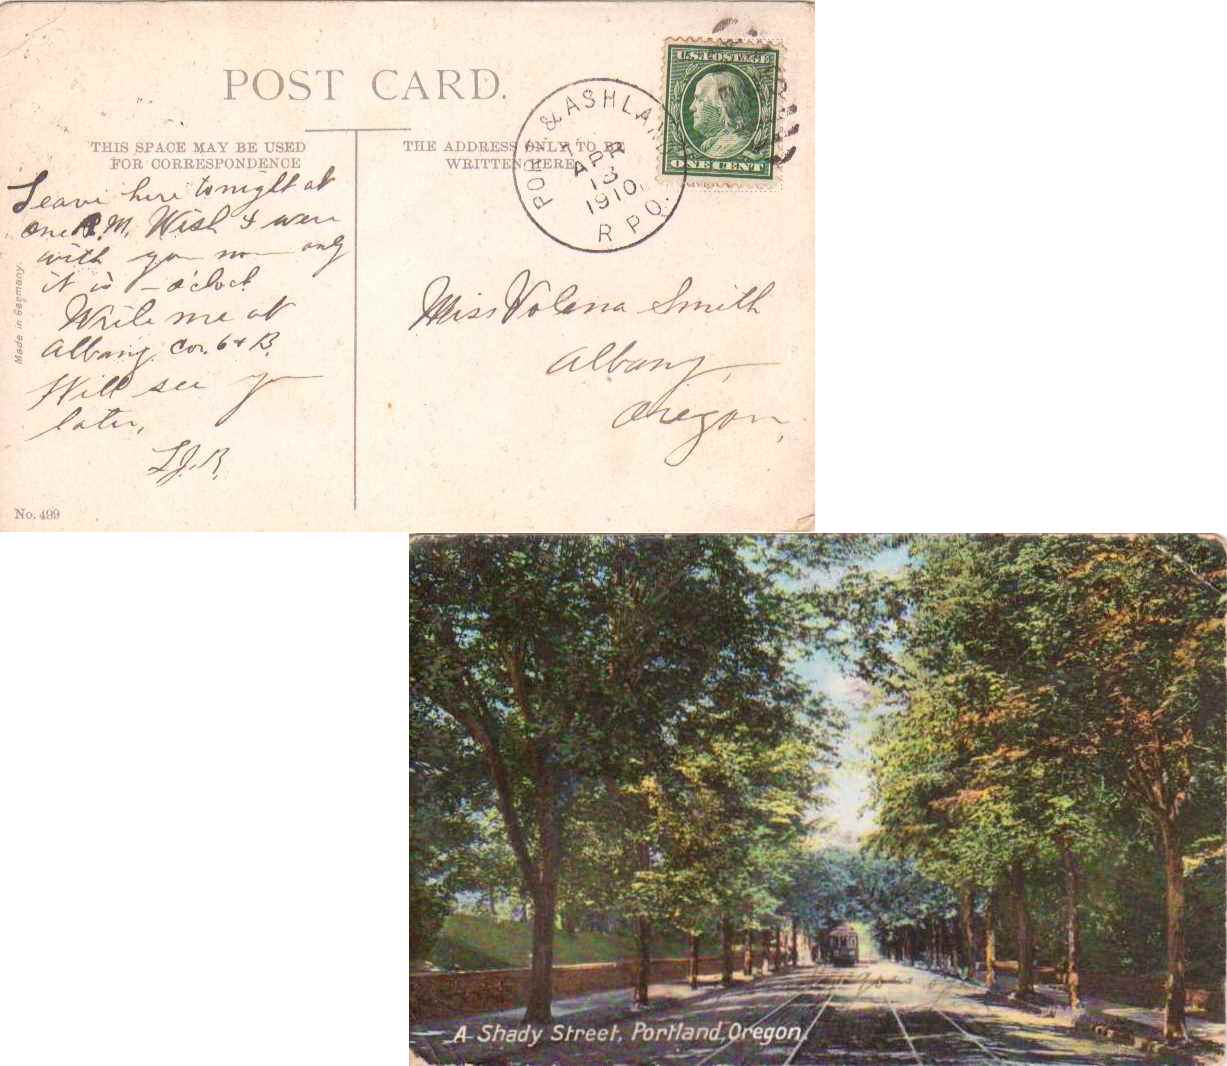 POST CARD.
THIS SPACE MAY BE USED
FOR CORRESPONDENCE
THE ADDRESS ONLY TO BE
WRITTEN HERE
U.S. POSTAGE
ONE CENT
PORT. & ASHLAND
APR
13
1910
R.P.O.
Leave here tonight at
one A.M. Wish I were
with you now only
it is - o'clock
Write me at
Albany. Cor. 6 & B.
Will see you
later,
L.J.R.
Miss Volena Smith
Albany,
Oregon,
Made in Germany.
No. 499
A Shady Street, Portland, Oregon.